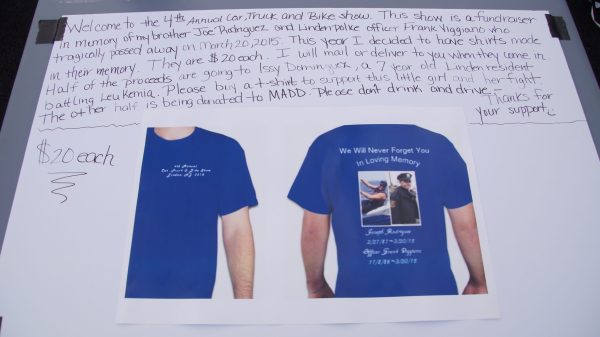 Welcome to the 4th Annual Car, Truck and Bike show. This show is a fundraiser
in memory of my brother Joe Rodriguez and Linden police officer Frank Viggiano who
tragically passed away on March 20, 2015. This year I decided to have shirts made
in their memory. They are $20 each. I will mail or deliver to you when they come in
Half of the proceeds are going to Issy, a 7 year old Linden resident
battling Leukemia. Please buy a t-shirt to support this little girl and her fight
The other half is being donated to MADD. Please don't drink and drive.-
Thanks for
your support
$20 each
4th Annual
Car, Truck & Bike Show
Linden NJ
We Will Never Forget You
In Loving Memory
Joseph Rodriguez
3/20/15
Officer Frank Viggiano
3/20/15